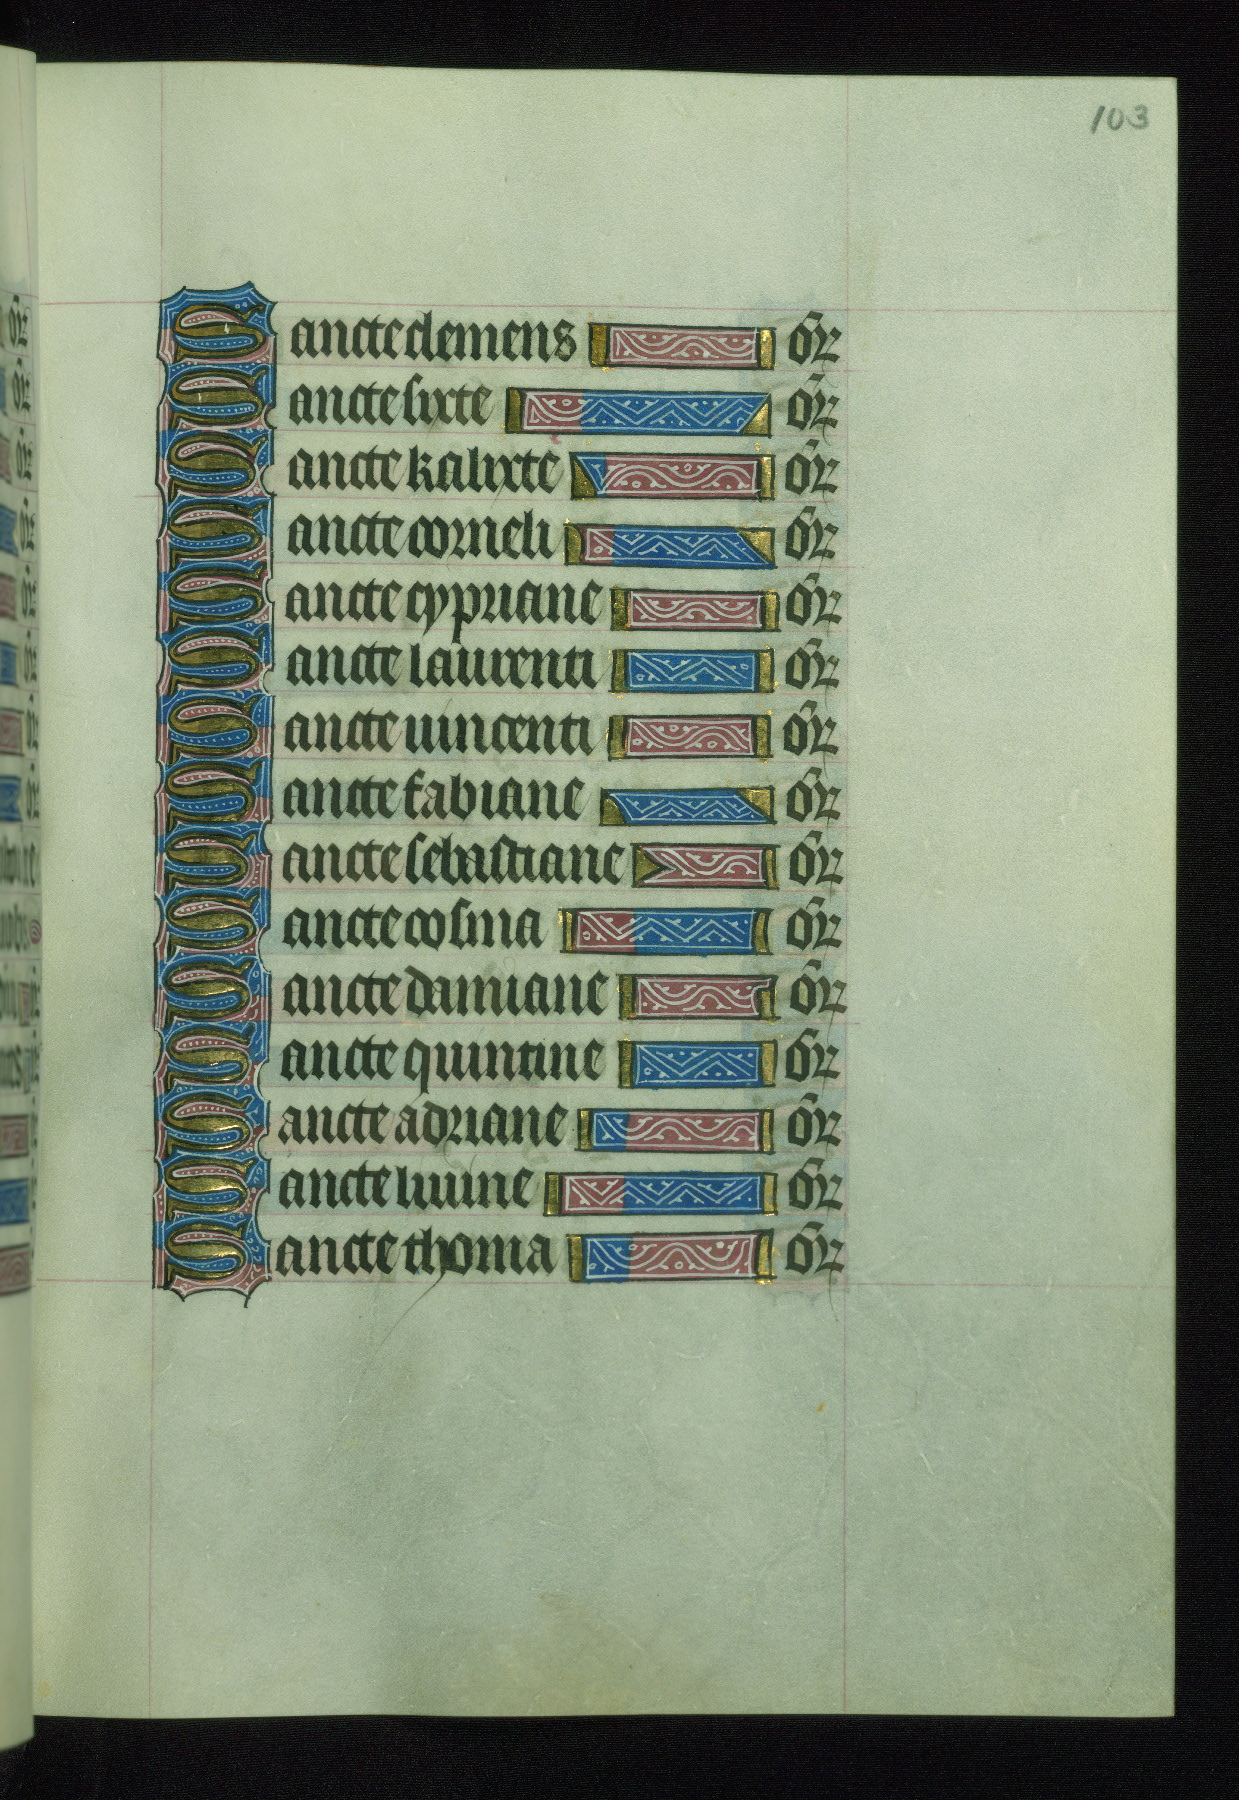 103
Sancte clemens or̄
Sancte sixte or̄
Sancte kalixte or̄
Sancte corneli or̄
Sancte cypriane or̄
Sancte laurenti or̄
Sancte uincenti or̄
Sancte fabiane or̄
Sancte sebastiane or̄
Sancte cosma or̄
Sancte damiane or̄
Sancte quintine or̄
Sancte adriane or̄
Sancte liuine or̄
Sancte thoma or̄